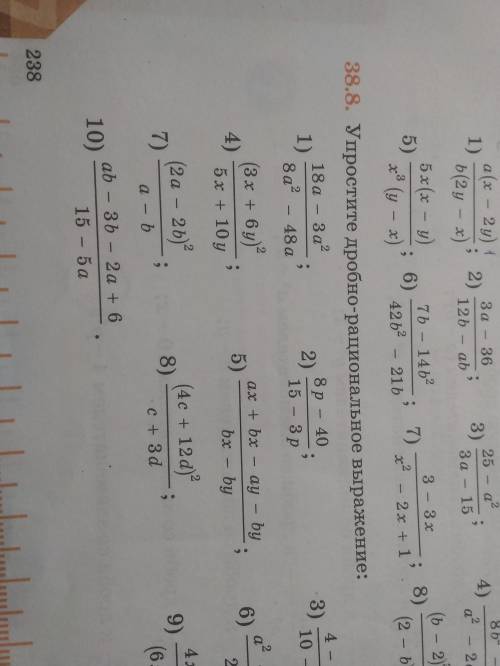 1) a(x − 2y) / b(2y − x); 2) 3a − 36 / 12b − ab; 3) 25 − a² / 3a − 15; 4) 8b / a²
5) 5x(x − y) / x³(y − x); 6) 7b − 14b² / 42b² − 21b; 7) 3 − 3x / x² − 2x + 1; 8) (b − 2) / (2 − b
38.8. Упростите дробно-рациональное выражение:
1) 18a − 3a² / 8a² − 48a; 2) 8p − 40 / 15 − 3p; 3) 4 − / 10
4) (3x + 6y)² / 5x + 10y; 5) ax + bx − ay − by / bx − by; 6) a² / 2
7) (2a − 2b)² / a − b; 8) (4c + 12d)² / c + 3d; 9) 4 / (6
10) ab − 3b − 2a + 6 / 15 − 5a.
238